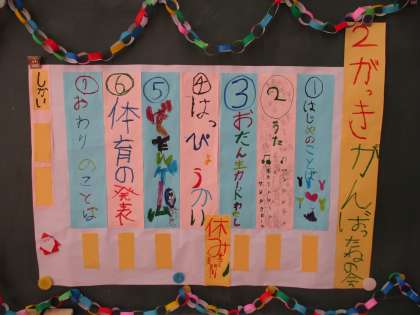 2がっきがんばったねの会
①はじめのことば
②うた
③おたん生カードわたし
④はっぴょうかい
休み
⑤ばくだんゲーム
⑥体育の発表
⑦おわりのことば
しかい